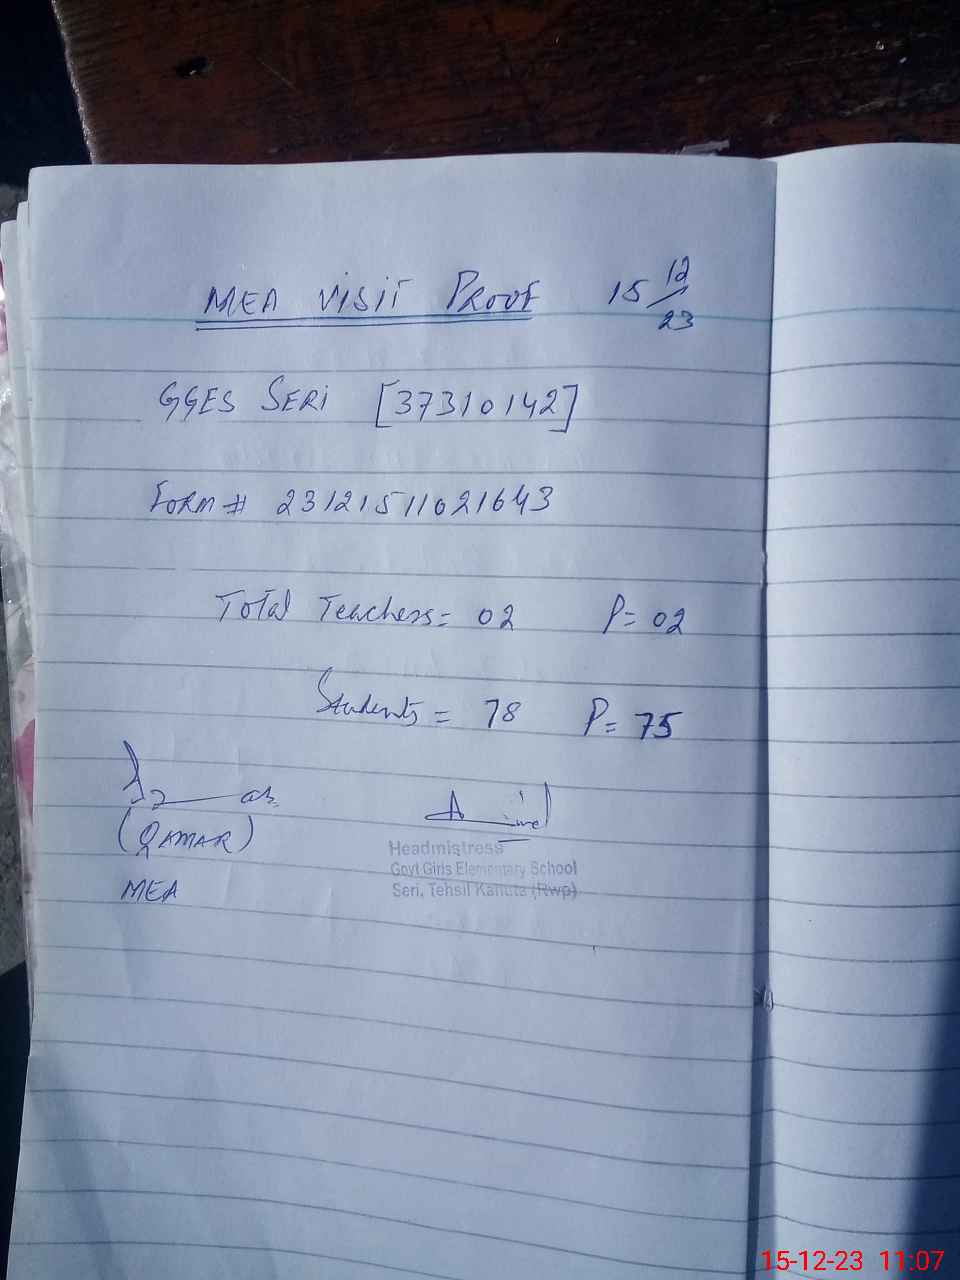 MEA VISIT PROOF 15 12/23
GGES SERI [37310142]
FORM # 23121511021643
Total Teachers = 02 P = 02
Students = 78 P = 75
(QAMAR)
MEA
Headmistress
Govt Girls Elementary School
Seri, Tehsil Kahuta (Rwp)
15-12-23 11:07